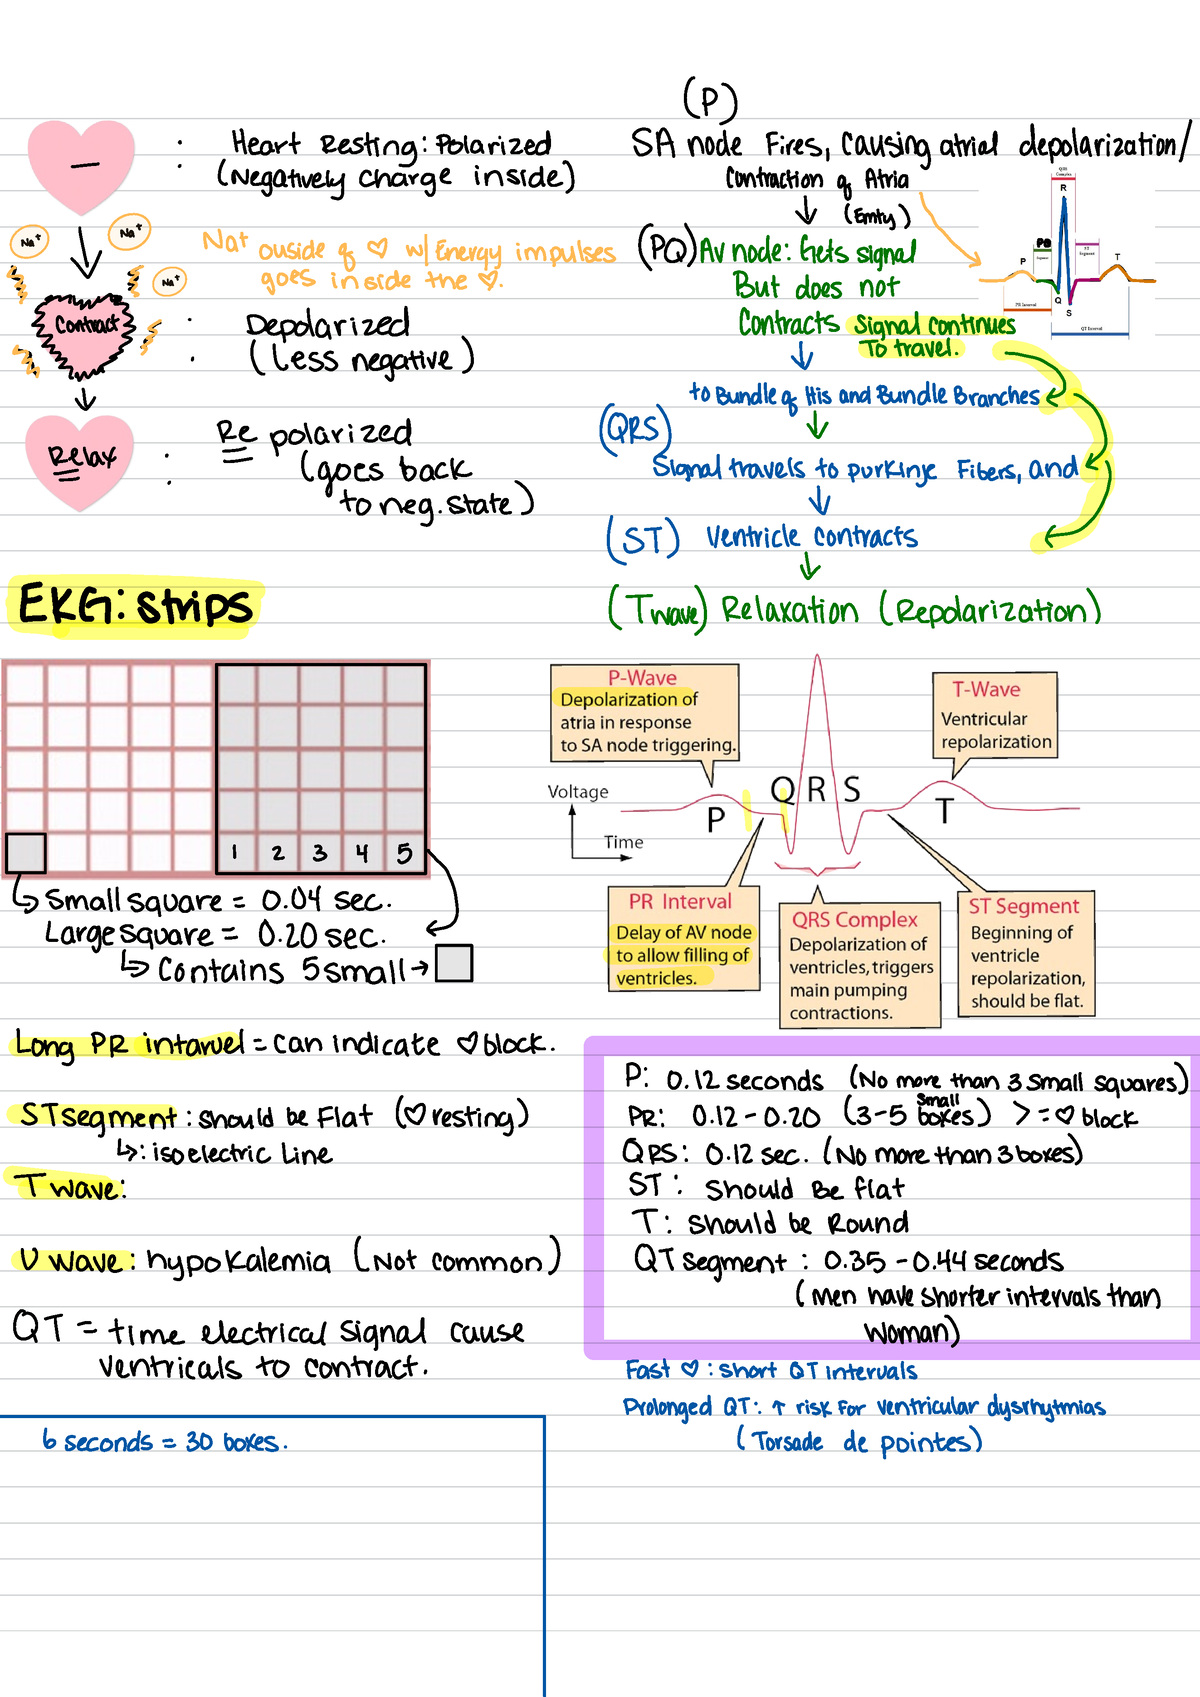 —
: Heart Resting: Polarized
(Negatively charge inside)
Na+
Na+
Na+
Na+ ouside of ♡ w/ Energy impulses
goes inside the ♡.
Contract
: Depolarized
(Less negative)
Relax
: Re polarized
(goes back
to neg. state)
(P)
SA node Fires, Causing atrial depolarization/
Contraction of Atria
(Emty)
(PQ) AV node: Gets signal
But does not
Contracts Signal continues
To travel.
to Bundle of His and Bundle Branches
(QRS)
Signal travels to purkinje Fibers, and
(ST) Ventricle Contracts
(T wave) Relaxation (Repolarization)
QRS
Complex
R
PQ
Segment
ST
Segment
P
T
Q
S
PR Interval
QT Interval
EKG: strips
1 2 3 4 5
↳ Small square = 0.04 sec.
Large square = 0.20 sec.
↳ Contains 5 small →
P-Wave
Depolarization of
atria in response
to SA node triggering.
T-Wave
Ventricular
repolarization
Voltage
Time
P
Q R S
T
PR Interval
Delay of AV node
to allow filling of
ventricles.
QRS Complex
Depolarization of
ventricles, triggers
main pumping
contractions.
ST Segment
Beginning of
ventricle
repolarization,
should be flat.
Long PR intarvel = can indicate ♡ block.
ST segment: should be Flat (♡ resting)
↳: isoelectric Line
T wave:
U wave: hypokalemia (Not common)
QT = time electrical signal cause
ventricals to contract.
6 seconds = 30 boxes.
P: 0.12 seconds (No more than 3 small squares)
PR: 0.12 - 0.20 (3-5 small boxes) > = ♡ block
QRS: 0.12 sec. (No more than 3 boxes)
ST: Should Be flat
T: Should be Round
QT segment: 0.35 - 0.44 seconds
(men have shorter intervals than
woman)
Fast ♡: short QT intervals
Prolonged QT: ↑ risk for ventricular dysrhytmias
(Torsade de pointes)